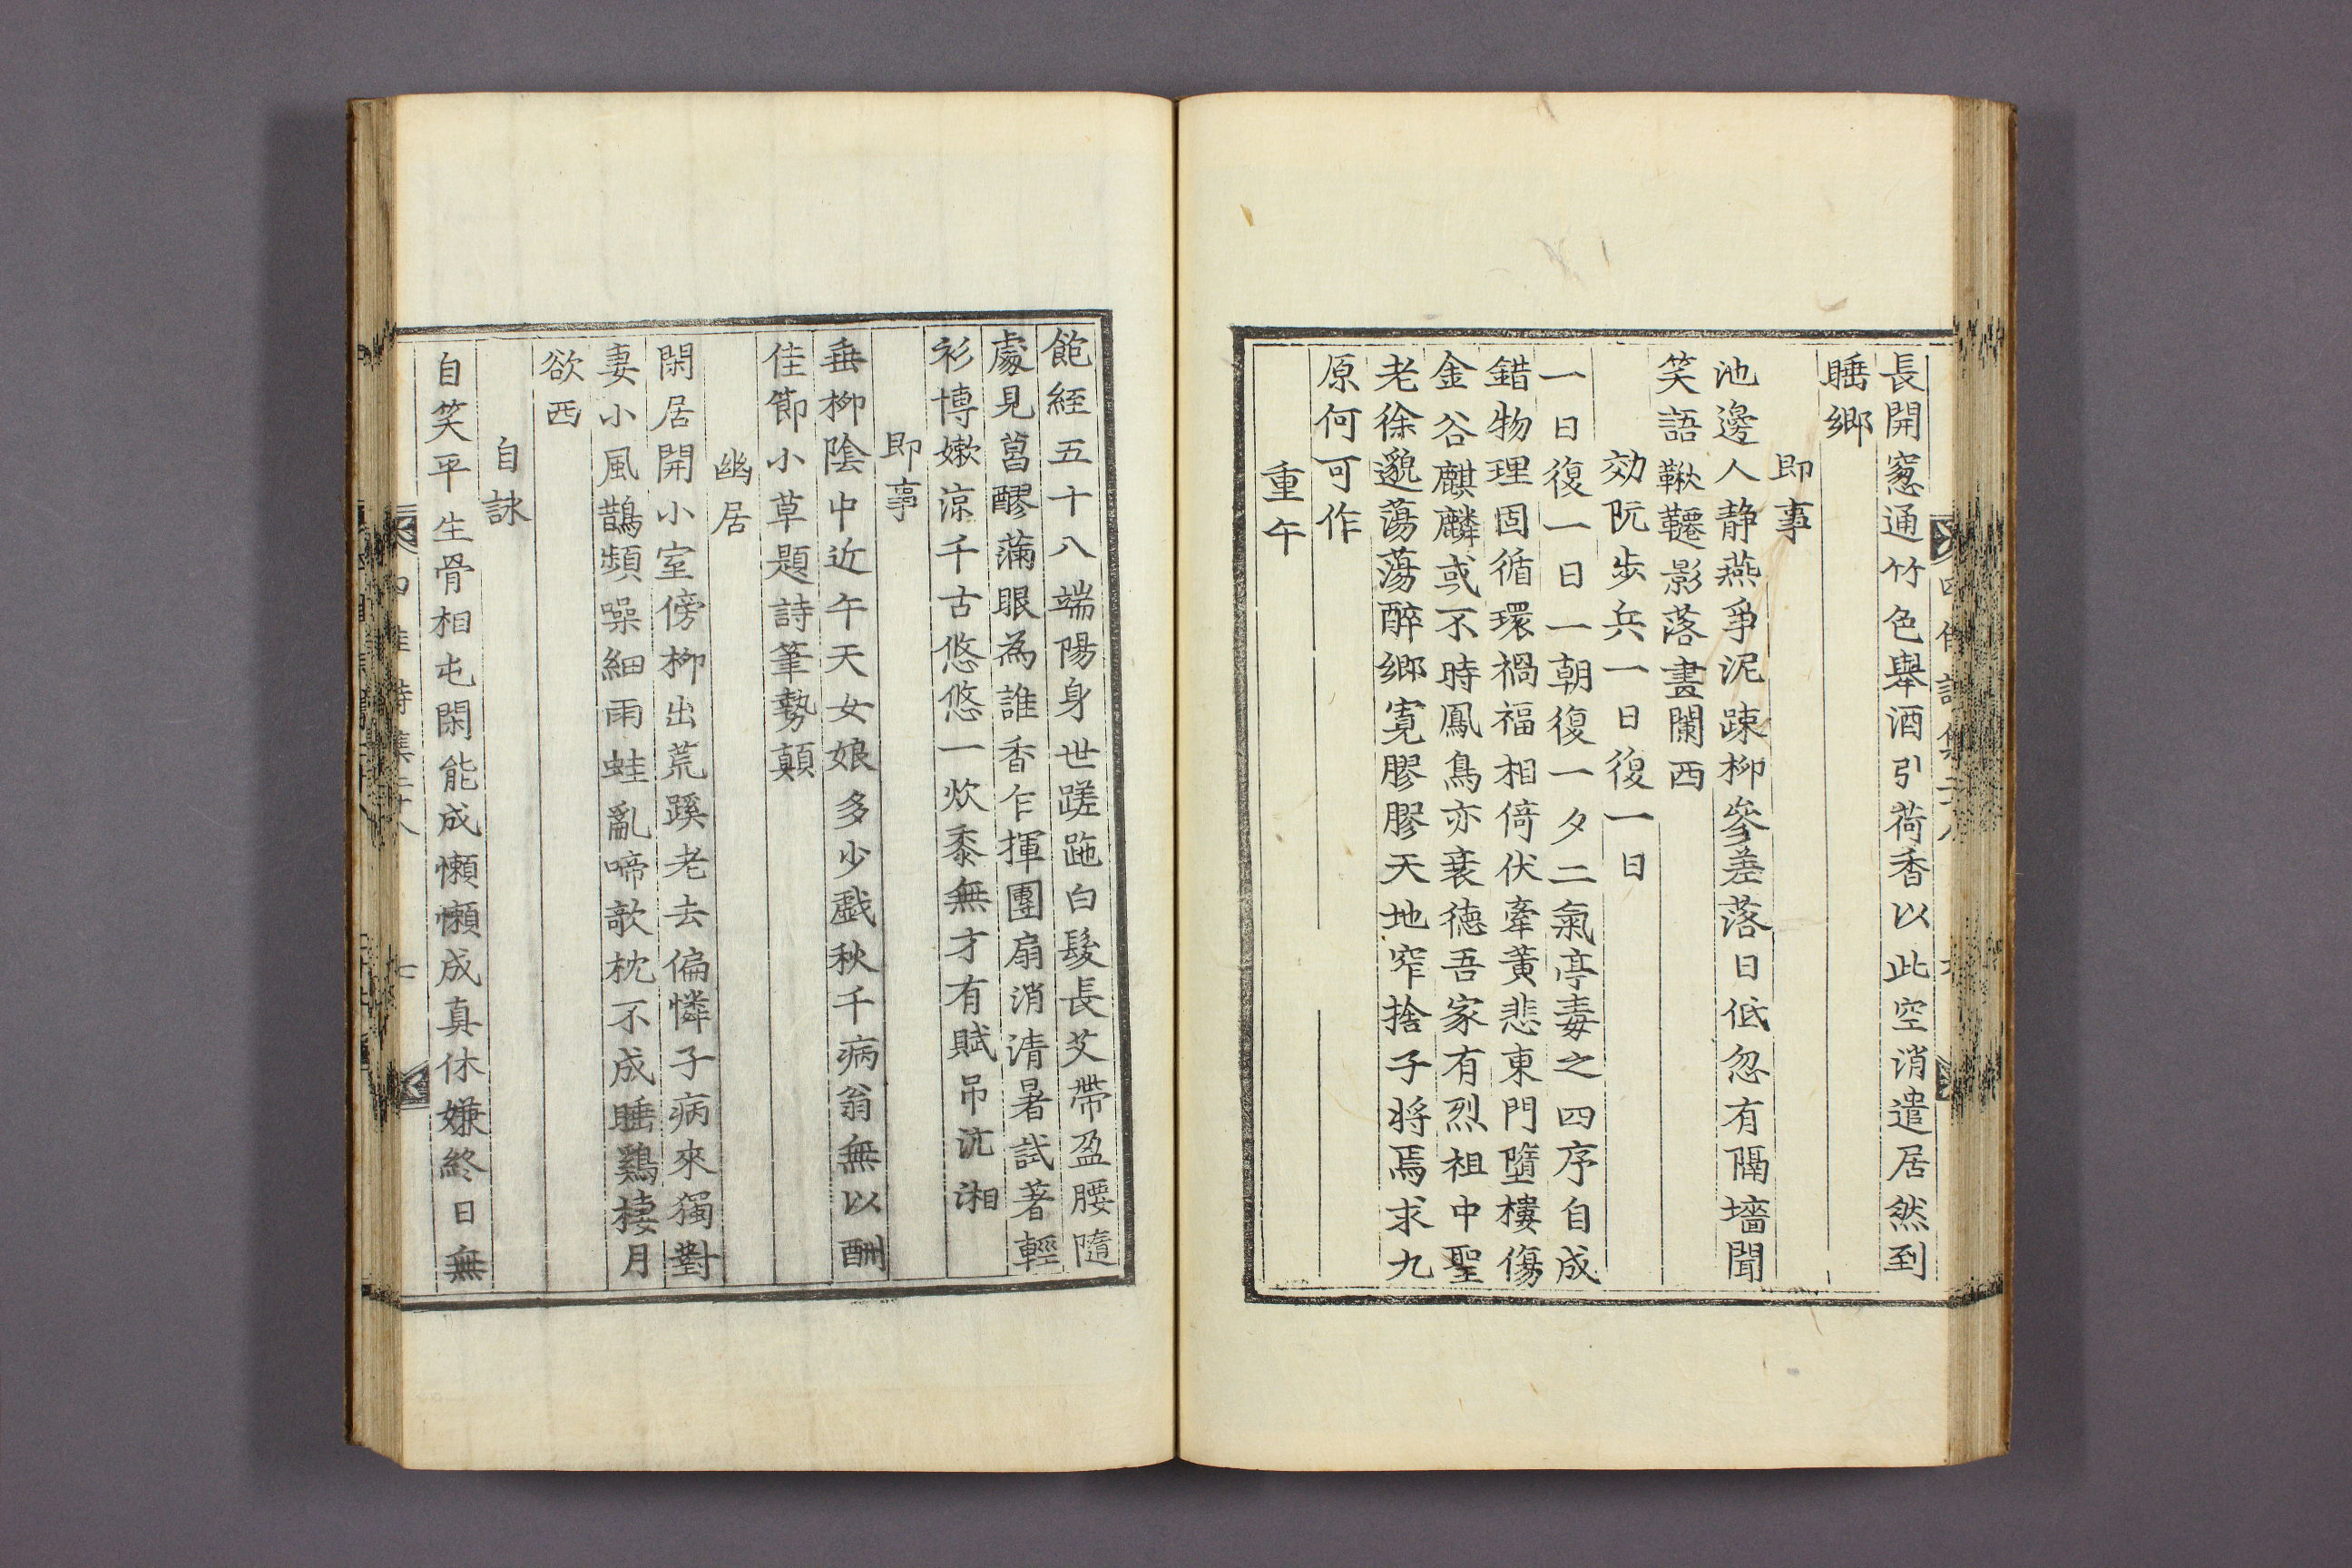 長開窓通竹色舉酒引荷香以此空消遣居然到
睡鄉
即事
池邊人静燕爭泥踈柳參差落日低忽有隔墻聞
笑語鞦韆影落畫闌西
効阮步兵一日復一日
一日復一日一朝復一夕二氣亭毒之四序自成
錯物理固循環禍福相倚伏牽黃悲東門墮樓傷
金谷麒麟或不時鳳鳥亦衰德吾家有烈祖中聖
老徐邈蕩蕩醉鄉寬膠膠天地窄捨子将焉求九
原何可作
重午
飽經五十八端陽身世蹉跎白髮長艾帶盈腰隨
處見菖醪滿眼為誰香乍揮團扇消清暑試著輕
衫博嫩涼千古悠悠一炊黍無才有賦吊沅湘
即事
垂柳陰中近午天女娘多少戱秋千病翁無以酬
佳節小草題詩筆勢顛
幽居
閑居開小室傍柳出荒蹊老去偏憐子病來獨對
妻小風鵲頻噪細雨蛙亂啼欹枕不成睡鷄棲月
欲西
自詠
自笑平生骨相屯閑能成懶懶成真休嫌終日無
四佳詩集二十八
七